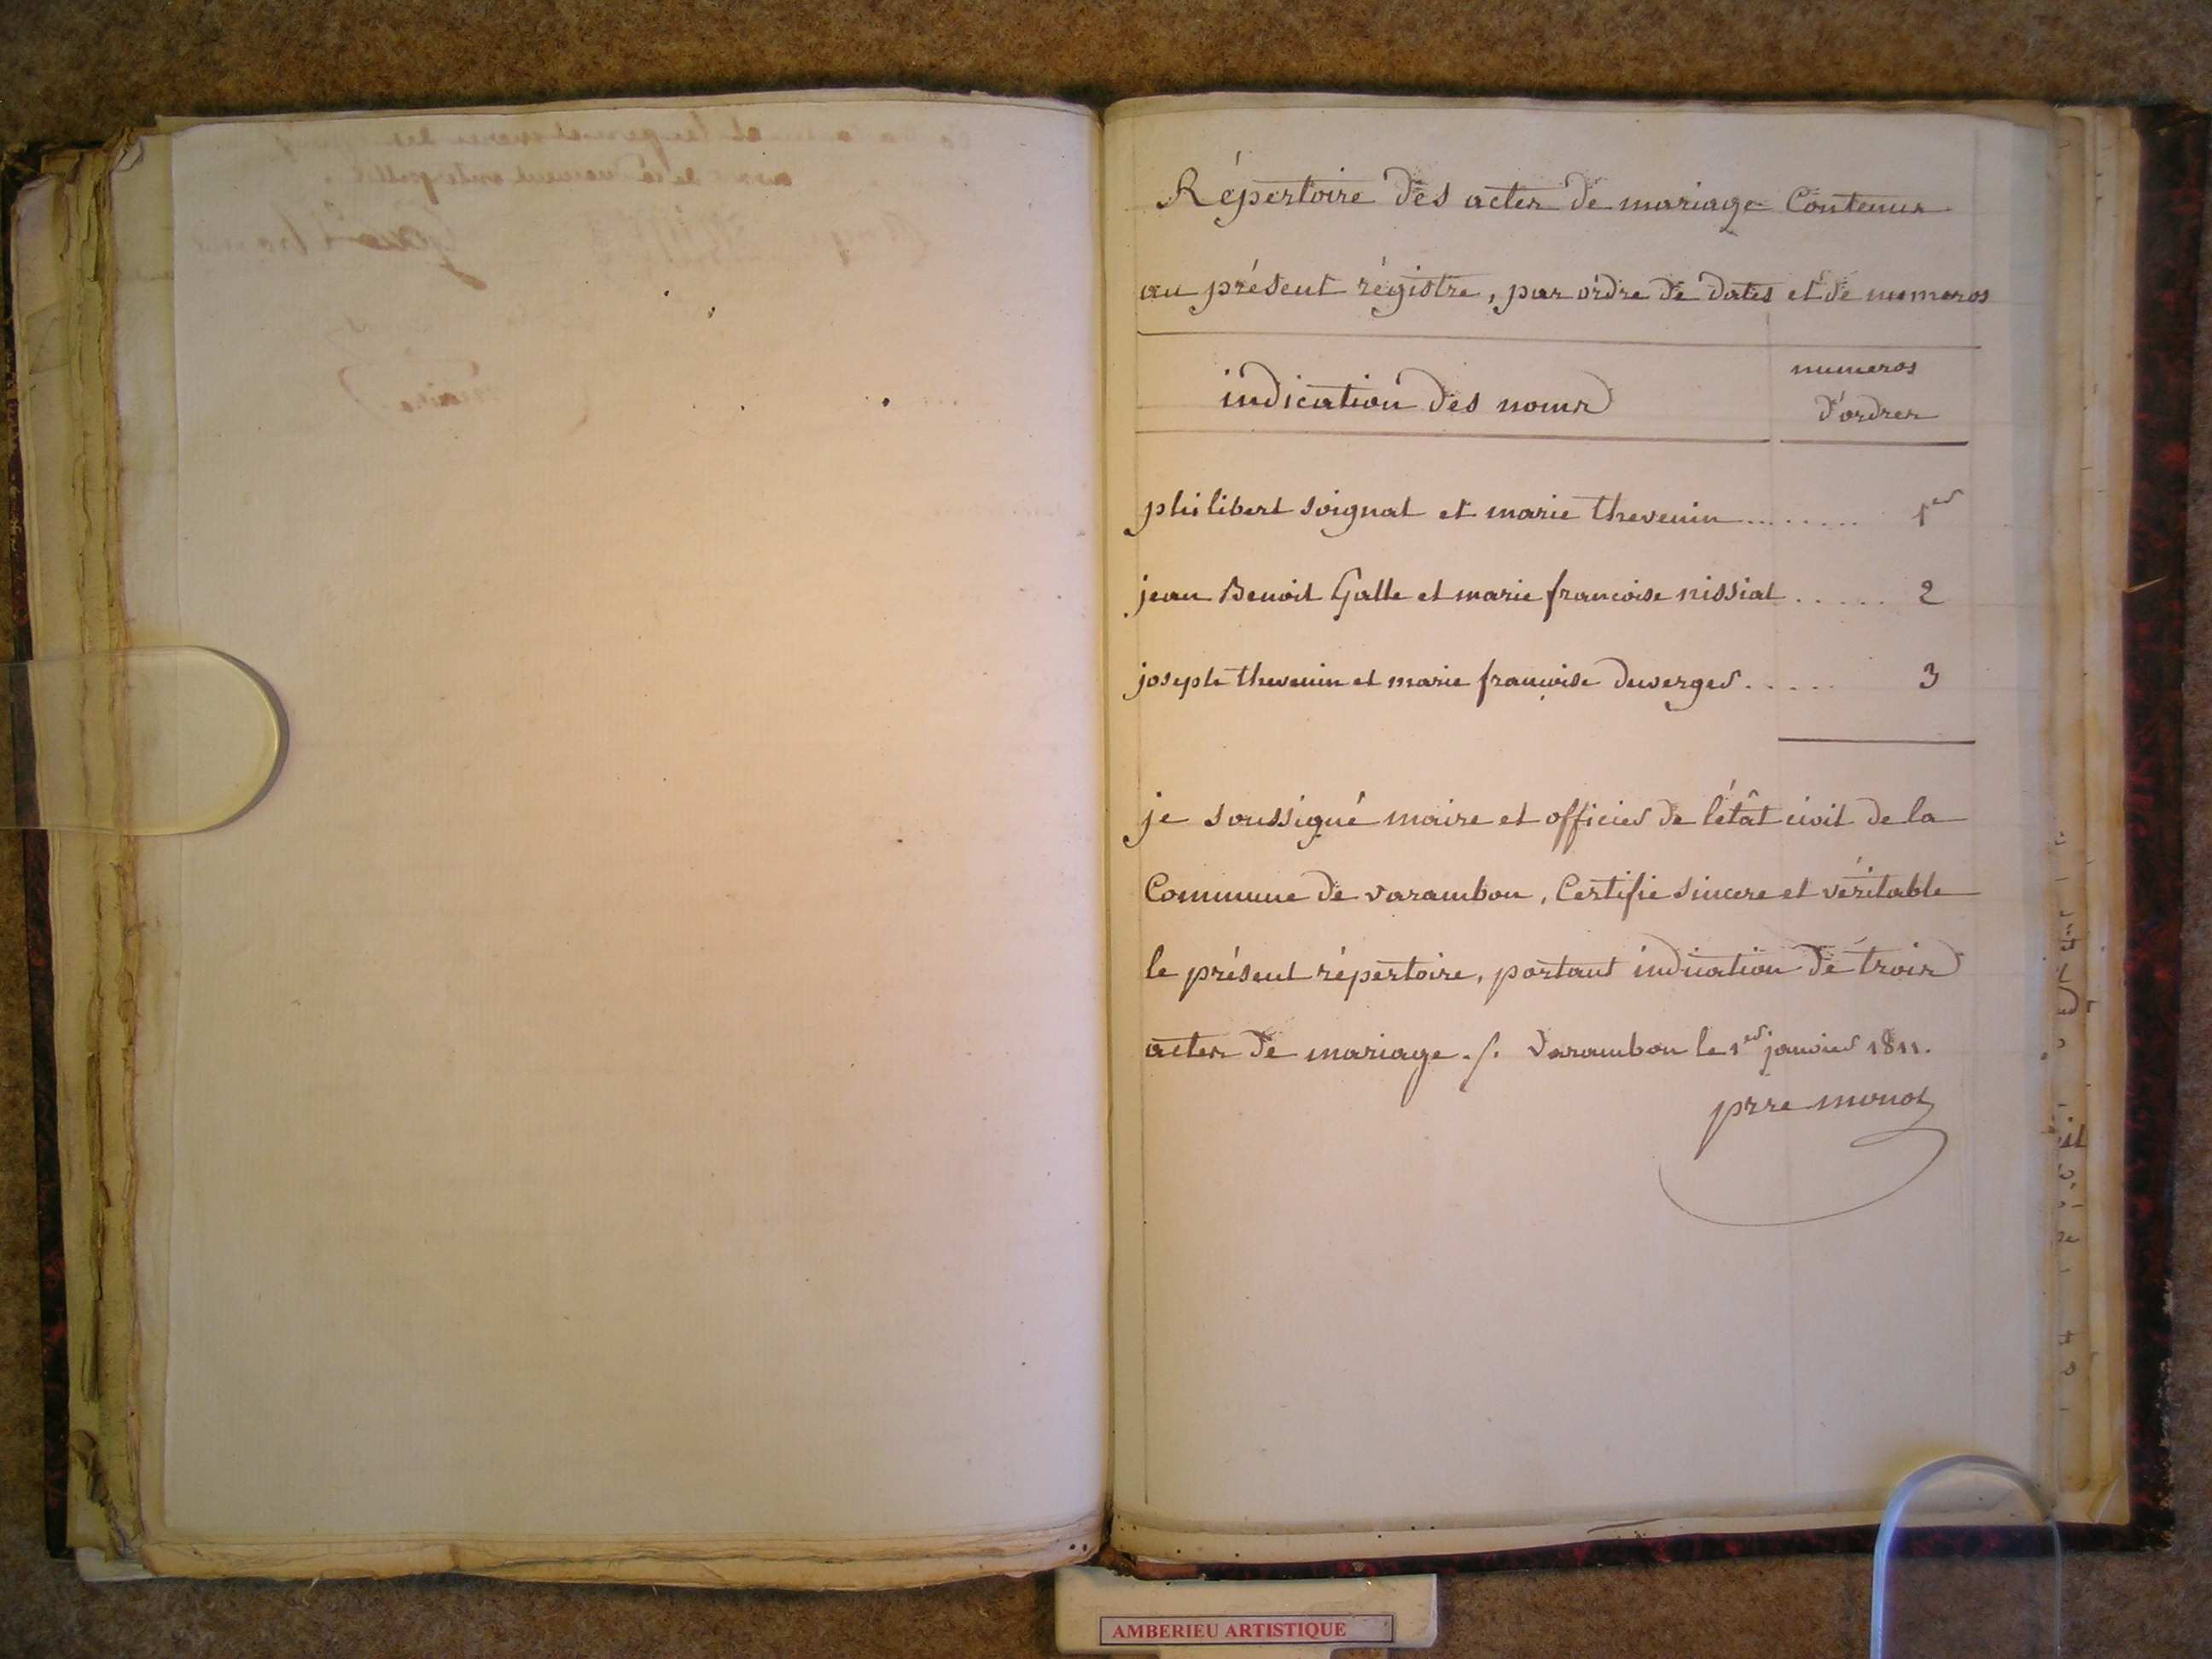 Répertoire des actes de mariage Contenus
au présent régistre, par ordre de dates et de numeros
indication des noms
numeros
d'ordres
philibert soignat et marie thevenin ........ 1er
jean Benoit Galle et marie francoise nissiat ..... 2
joseph thevenin et marie françoise duverger ..... 3
je soussigné maire et officier de l'étât civil de la
Commune de varambon, Certifie sincere et véritable
le présent répertoire, portant indication de trois
actes de mariage ./. Varambon le 1er janvier 1811.
prre monoz
AMBERIEU ARTISTIQUE